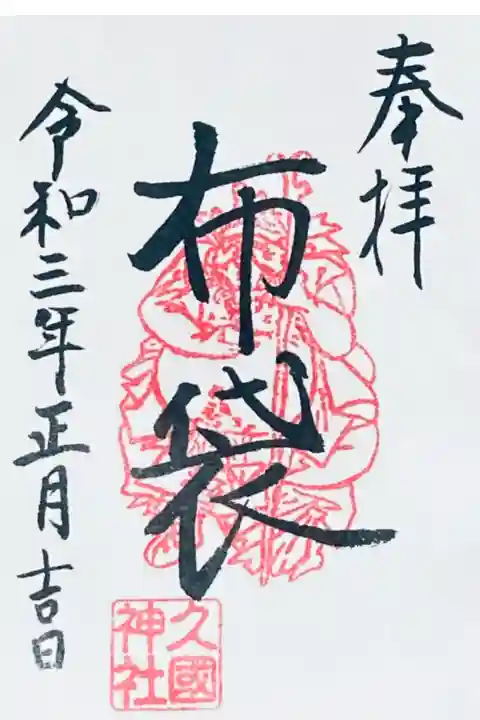 奉拝
布袋
令和三年正月吉日
久國
神社